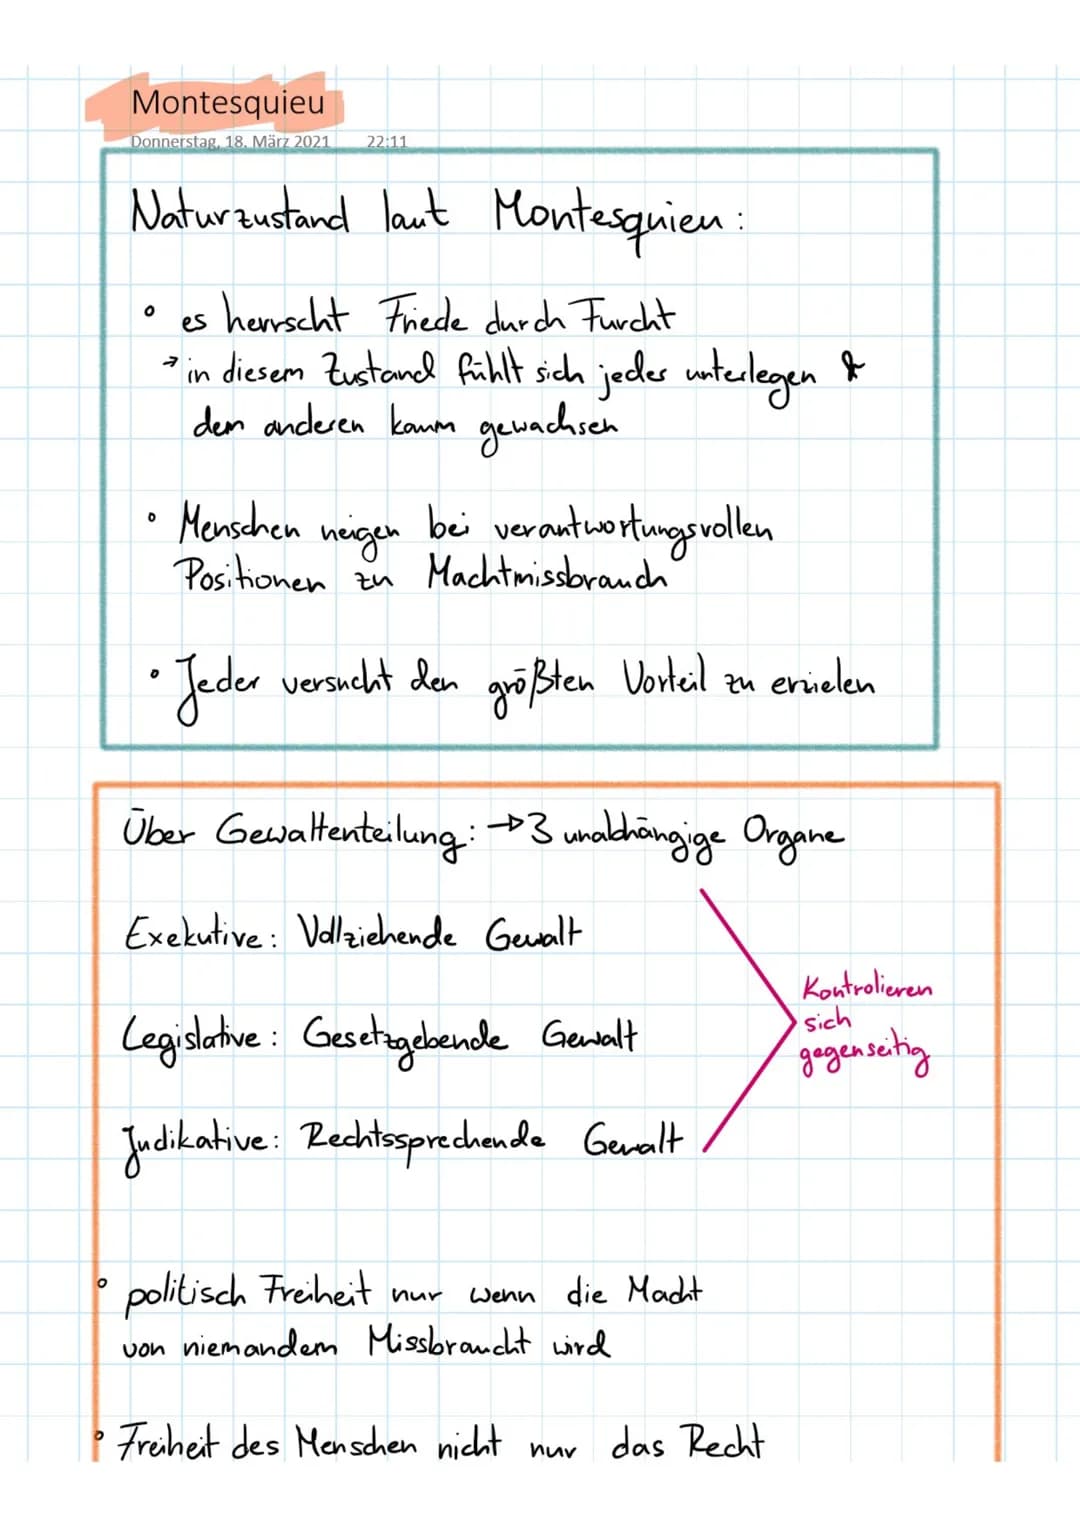 Montesquieu
Donnerstag, 18. März 2021 22:11
Naturzustand laut Montesquieu:
° es herrscht Friede durch Furcht
→ in diesem Zustand fühlt sich jeder unterlegen &
dem anderen kaum gewachsen
° Menschen neigen bei verantwortungsvollen
Positionen zu Machtmissbrauch
° Jeder versucht den größten Vorteil zu erzielen
Über Gewaltenteilung: → 3 unabhängige Organe
Exekutive: Vollziehende Gewalt
Legislative: Gesetzgebende Gewalt
Judikative: Rechtssprechende Gewalt
Kontrolieren
sich
gegenseitig
° politisch Freiheit nur wenn die Macht
von niemandem Missbraucht wird
° Freiheit des Menschen nicht nur das Recht